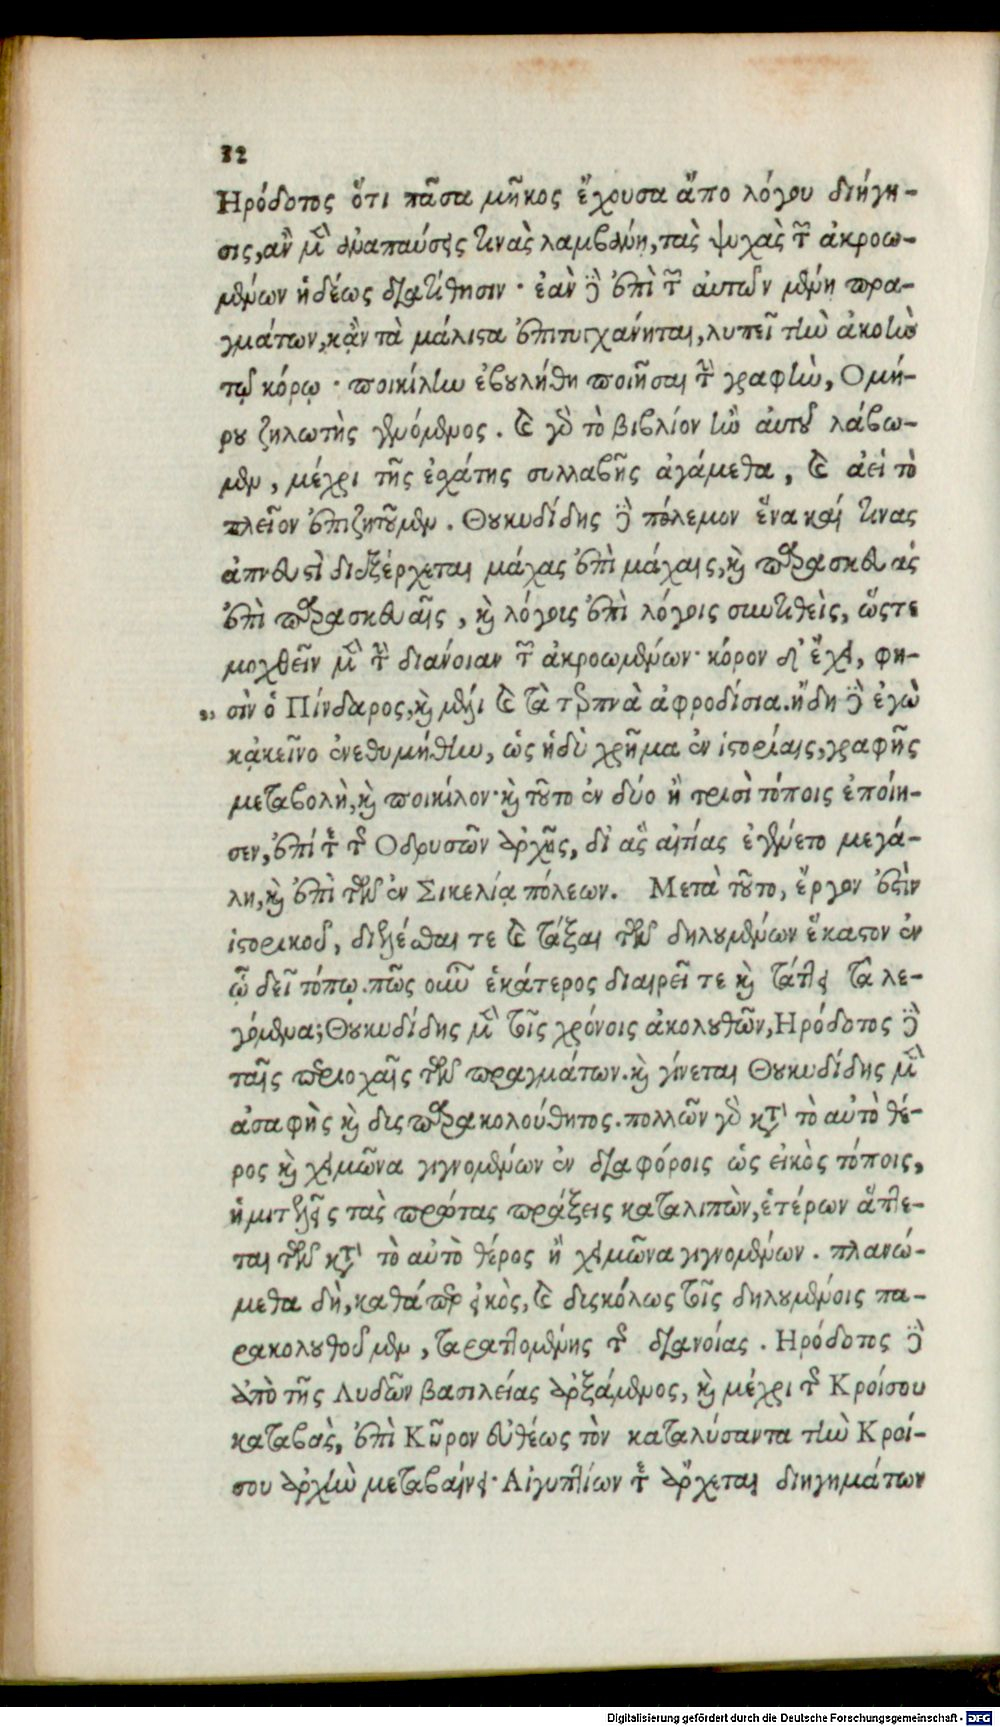 32
Ηρόδοτος ὅτι πᾶσα μῆκος ἔχουσα ἄπο λόγου διήγη-
σις, ἂν μὲν ἀναπαύσεις τινὰς λαμβάνῃ, τὰς ψυχὰς τῶν ἀκροω-
μένων ἡδέως διατίθησιν· ἐὰν δὲ ἐπὶ τῶν αὐτῶν μένῃ πρα-
γμάτων, κἂν τὰ μάλιστα ἐπιτυγχάνηται, λυπεῖ τὴν ἀκοὴν
τῷ κόρῳ· ποικίλην ἐβουλήθη ποιῆσαι τὴν γραφὴν, Ομή-
ρου ζηλωτὴς γενόμενος. καὶ γὰρ τὸ βιβλίον ἢν αὐτοῦ λάβω-
μεν, μέχρι τῆς ἐσχάτης συλλαβῆς ἀγάμεθα, καὶ ἀεὶ τὸ
πλεῖον ἐπιζητοῦμεν. Θουκυδίδης δὲ πόλεμον ἕνα καί τινας
ἀπνευστὶ διεξέρχεται μάχας ἐπὶ μάχαις, καὶ παρασκευὰς
ἐπὶ παρασκευαῖς, καὶ λόγοις ἐπὶ λόγοις συντιθεὶς, ὥστε
μοχθεῖν μὲν τὴν διάνοιαν τῶν ἀκροωμένων· κόρον δ' ἔχει, φη-
„ σὶν ὁ Πίνδαρος, καὶ μέλι καὶ τὰ τερπνὰ ἀφροδίσια. ἤδη δὲ ἐγὼ
κᾀκεῖνο ἐνεθυμήθην, ὡς ἡδὺ χρῆμα ἐν ἱστορίαις, γραφῆς
μεταβολὴ, καὶ ποικίλον· καὶ τοῦτο ἐν δύο ἢ τρισὶ τόποις ἐποίη-
σεν, ἐπί τε τῆς Οδρυσῶν ἀρχῆς, δι' ἃς αἰτίας ἐγένετο μεγά-
λη, καὶ ἐπὶ τῶν ἐν Σικελίᾳ πόλεων. Μετὰ τοῦτο, ἔργον ἐστὶν
ἱστορικοῦ, διελέσθαι τε καὶ τάξαι τῶν δηλουμένων ἕκαστον ἐν
ᾧ δεῖ τόπῳ. πῶς οὖν ἑκάτερος διαιρεῖ τε καὶ τάττει τὰ λε-
γόμενα; Θουκυδίδης μὲν τοῖς χρόνοις ἀκολουθῶν, Ηρόδοτος δὲ
ταῖς περιοχαῖς τῶν πραγμάτων. καὶ γίνεται Θουκυδίδης μὲν
ἀσαφὴς καὶ δυσπαρακολούθητος. πολλῶν γὰρ κατὰ τὸ αὐτὸ θέ-
ρος καὶ χειμῶνα γιγνομένων ἐν διαφόροις ὡς εἰκὸς τόποις,
ἡμιτελεῖς τὰς πρώτας πράξεις καταλιπὼν, ἑτέρων ἅπτε-
ται τῶν κατὰ τὸ αὐτὸ θέρος ἢ χειμῶνα γιγνομένων. πλανώ-
μεθα δὴ, καθάπερ εἰκὸς, καὶ δυσκόλως τοῖς δηλουμένοις πα-
ρακολουθοῦμεν, ταραττομένης τῆς διανοίας. Ηρόδοτος δὲ
ἀπὸ τῆς Λυδῶν βασιλείας ἀρξάμενος, καὶ μέχρι τῆς Κροίσου
καταβὰς, ἐπὶ Κῦρον εὐθέως τὸν καταλύσαντα τὴν Κροί-
σου ἀρχὴν μεταβαίνει· Αἰγυπτίων τε ἄρχεται διηγημάτων
Digitalisierung gefördert durch die Deutsche Forschungsgemeinschaft - DFG